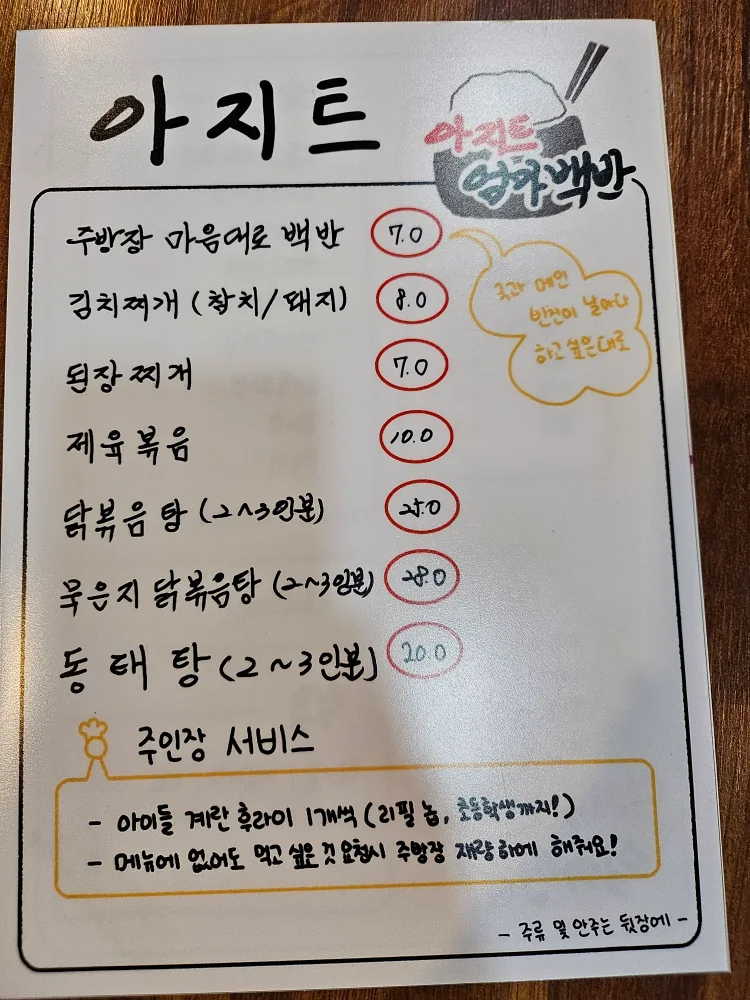 아지트
아지트
엄마백반
주방장 마음대로 백반 7.0
국과 메인
반찬이 날마다
하고싶은대로
김치찌개 (참치/돼지) 8.0
된장찌개 7.0
제육볶음 10.0
닭볶음탕 (2~3인분) 25.0
묵은지 닭볶음탕 (2~3인분) 28.0
동태탕 (2~3인분) 20.0
주인장 서비스
- 아이들 계란 후라이 1개씩 (리필 놉, 초등학생까지!)
- 메뉴에 없어도 먹고 싶은 것 요청시 주방장 재량하에 해줘요!
- 주류 및 안주는 뒷장에 -